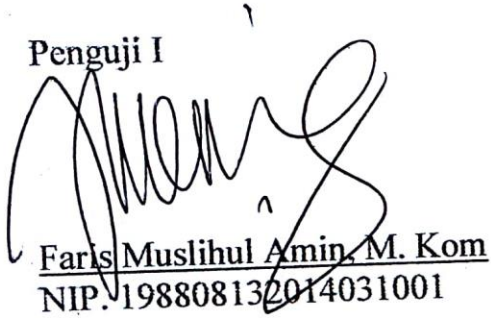 Penguji I
Faris Muslihul Amin, M. Kom
NIP. 198808132014031001